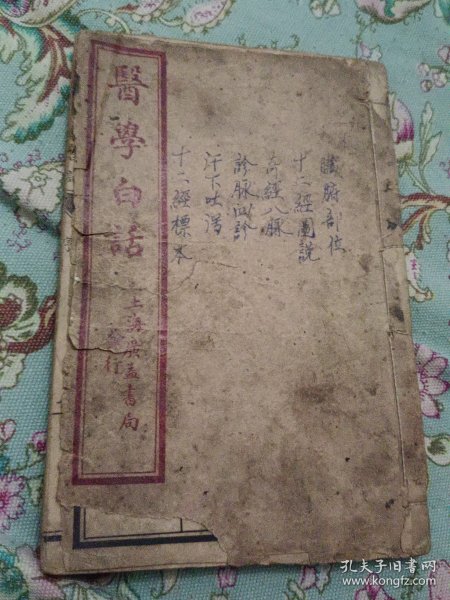 醫學白話
上海廣益書局
發行
臟腑部位
十二經圖說
奇經八脈
診脈四診
汗下吐
十二經標本
孔夫子旧书网
www.kongfz.com